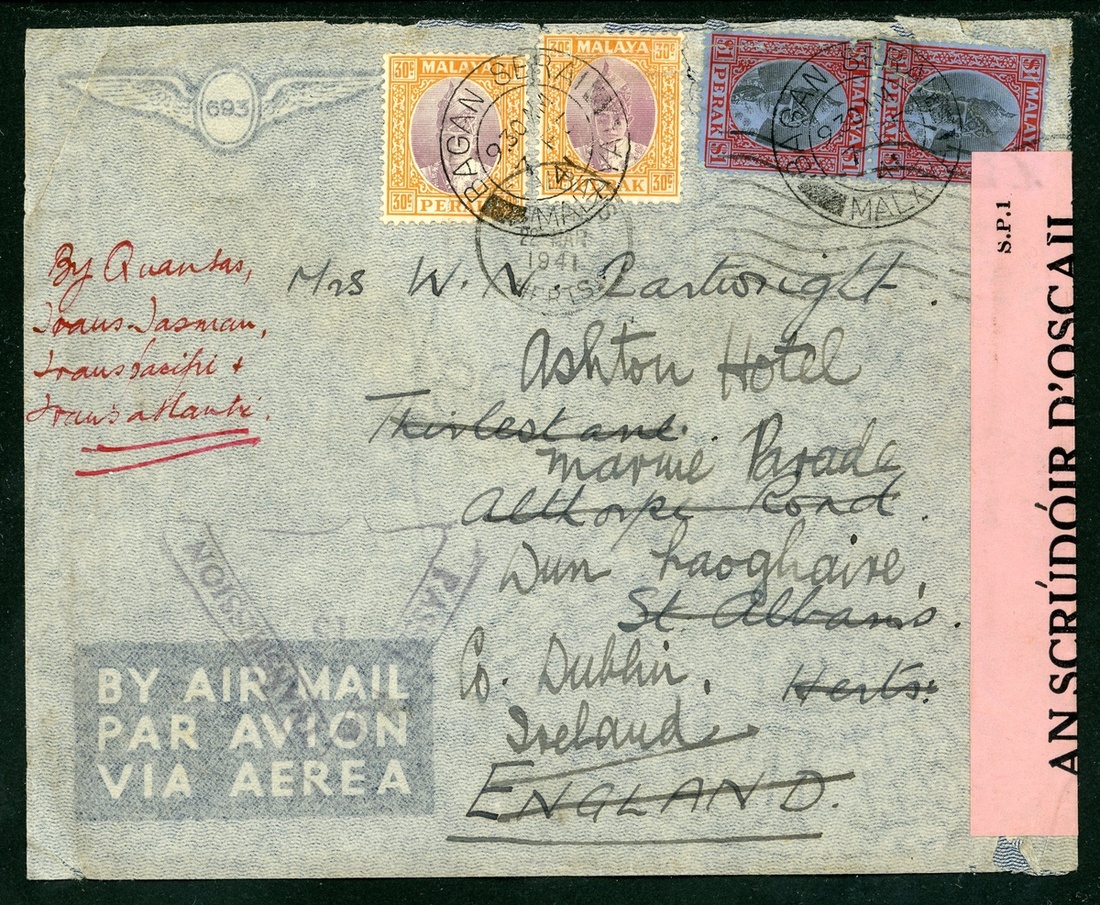 693
30c MALAYA
PERAK
30c
30c MALAYA 30c
30c
$1 MALAYA
PERAK $1
$1 MALAYA
PERAK $1
BAGAN SERAI
930AM
MALAYA
BAGAN
930AM
MALAYA
22 MAR
1941
HERTS
S.P.1
AN SCRÚDÓIR D'OSCAIL
By Quantas,
Trans-Tasman,
Transpacific +
Transatlantic.
Mrs W. N. Cartwright.
Ashton Hotel
Thirlestane.
Marine Parade
Althorpe Road.
Dun Laoghaire,
St Albans.
Co. Dublin.
Herts:
Ireland
ENGLAND.
BY AIR MAIL
PAR AVION
VIA AEREA